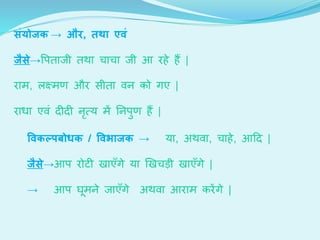 संयोजक → और, तथा एवं
जैसे→पिताजी तथा चाचा जी आ रहे हैं |
राम, लक्ष्मण और सीता वन को गए |
राधा एवं दीदी नृत्य में निपुण हैं |
विकल्पबोधक / विभाजक → या, अथवा, चाहे, आदि |
जैसे→आप रोटी खाएँगे या खिचड़ी खाएँगे |
→ आप घूमने जाएँगे अथवा आराम करेंगे |